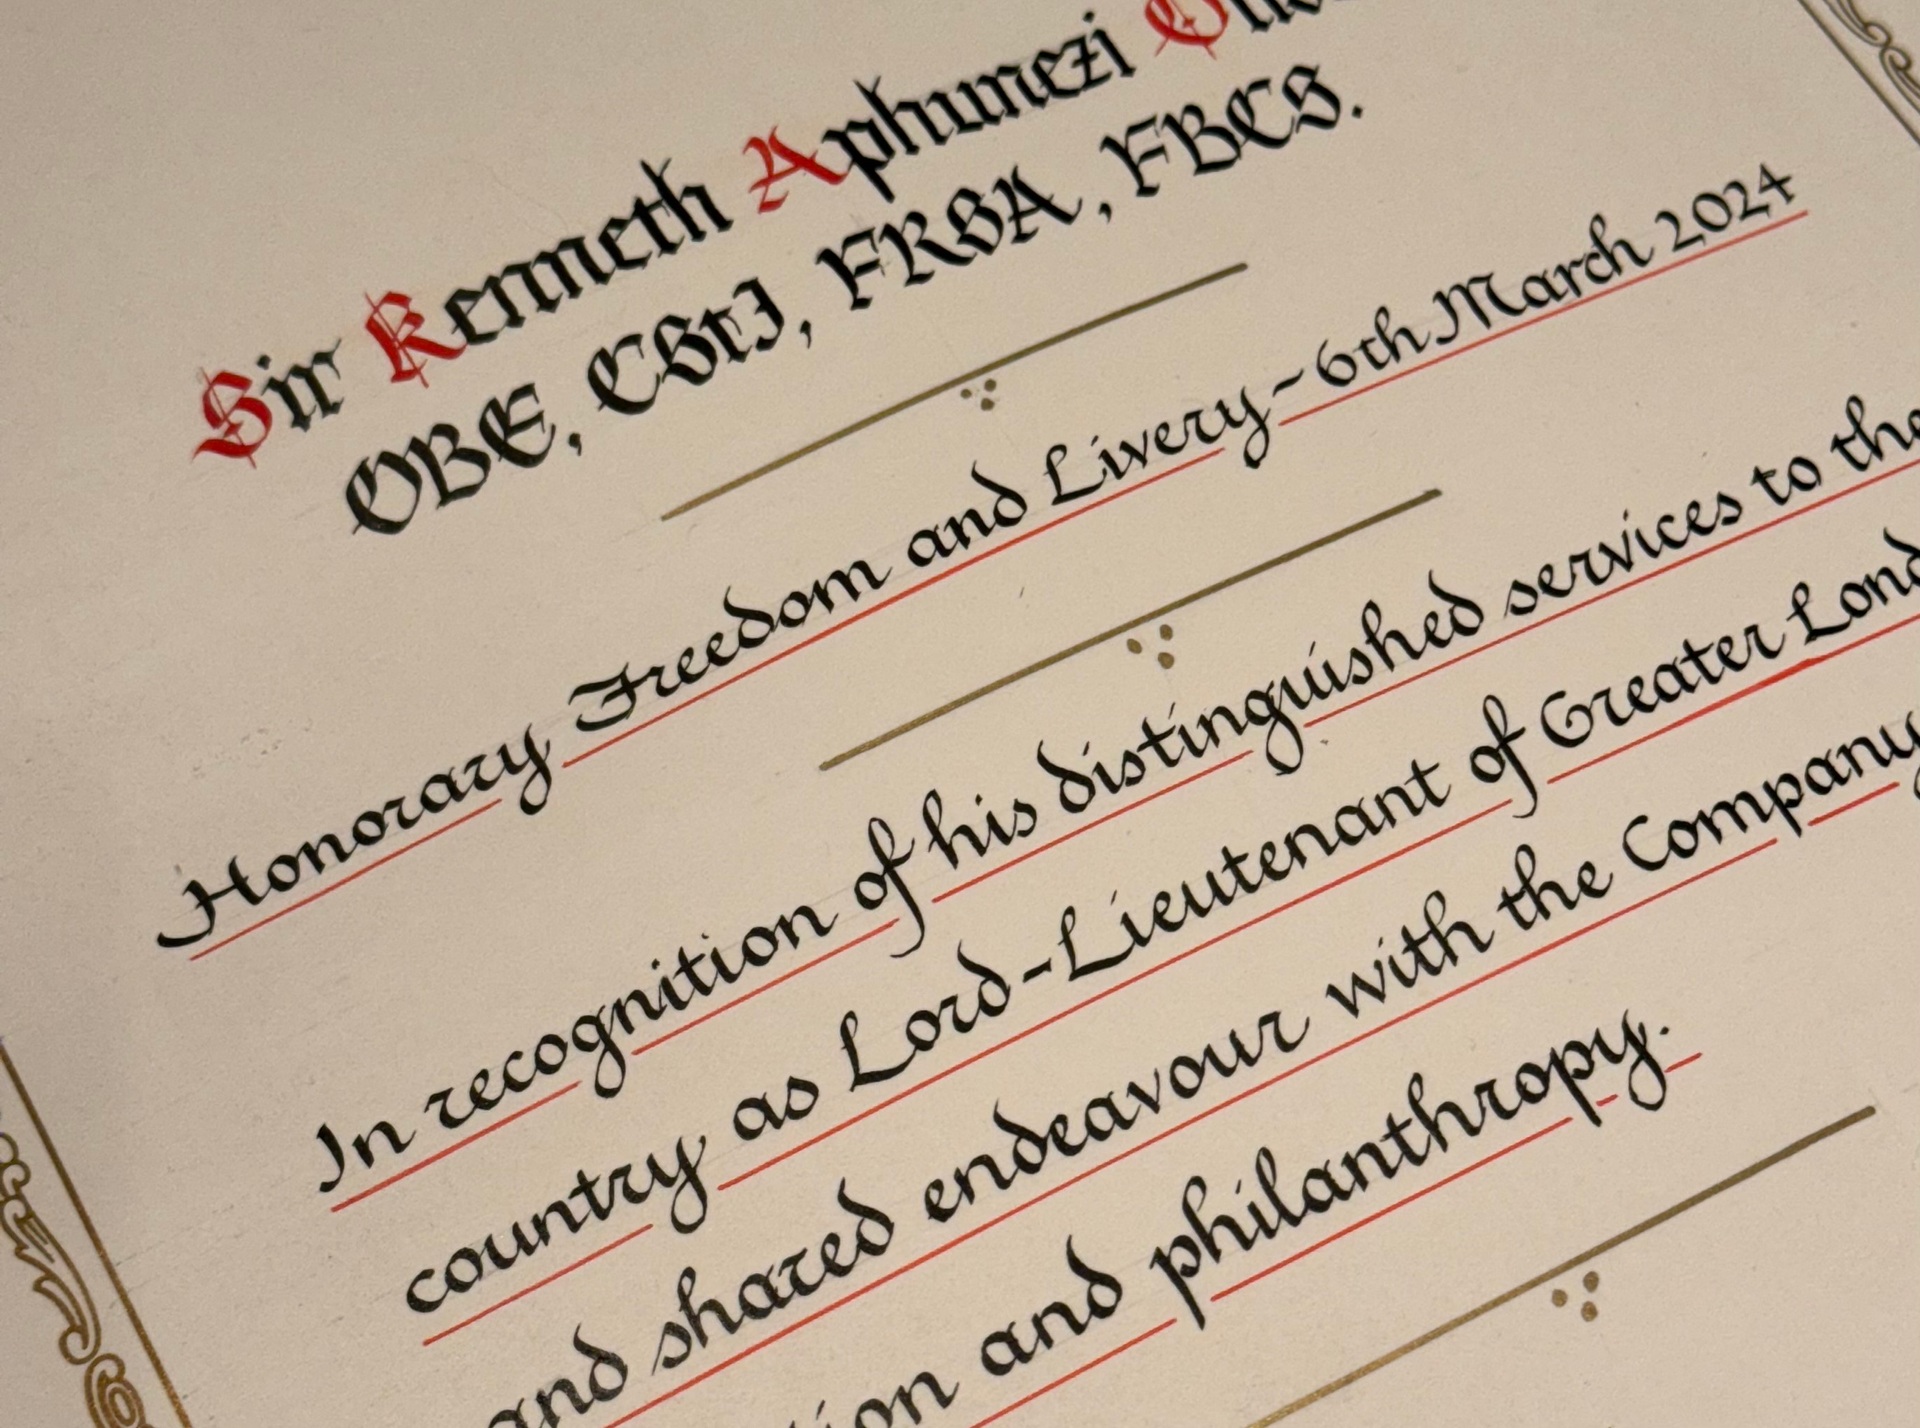 Sir Kenneth Aphunezi
OBE, CStJ, FRSA, FBCS.
Honorary Freedom and Livery - 6th March 2024
In recognition of his distinguished services to the
country as Lord-Lieutenant of Greater
and shared endeavour with the Company
and philanthropy.